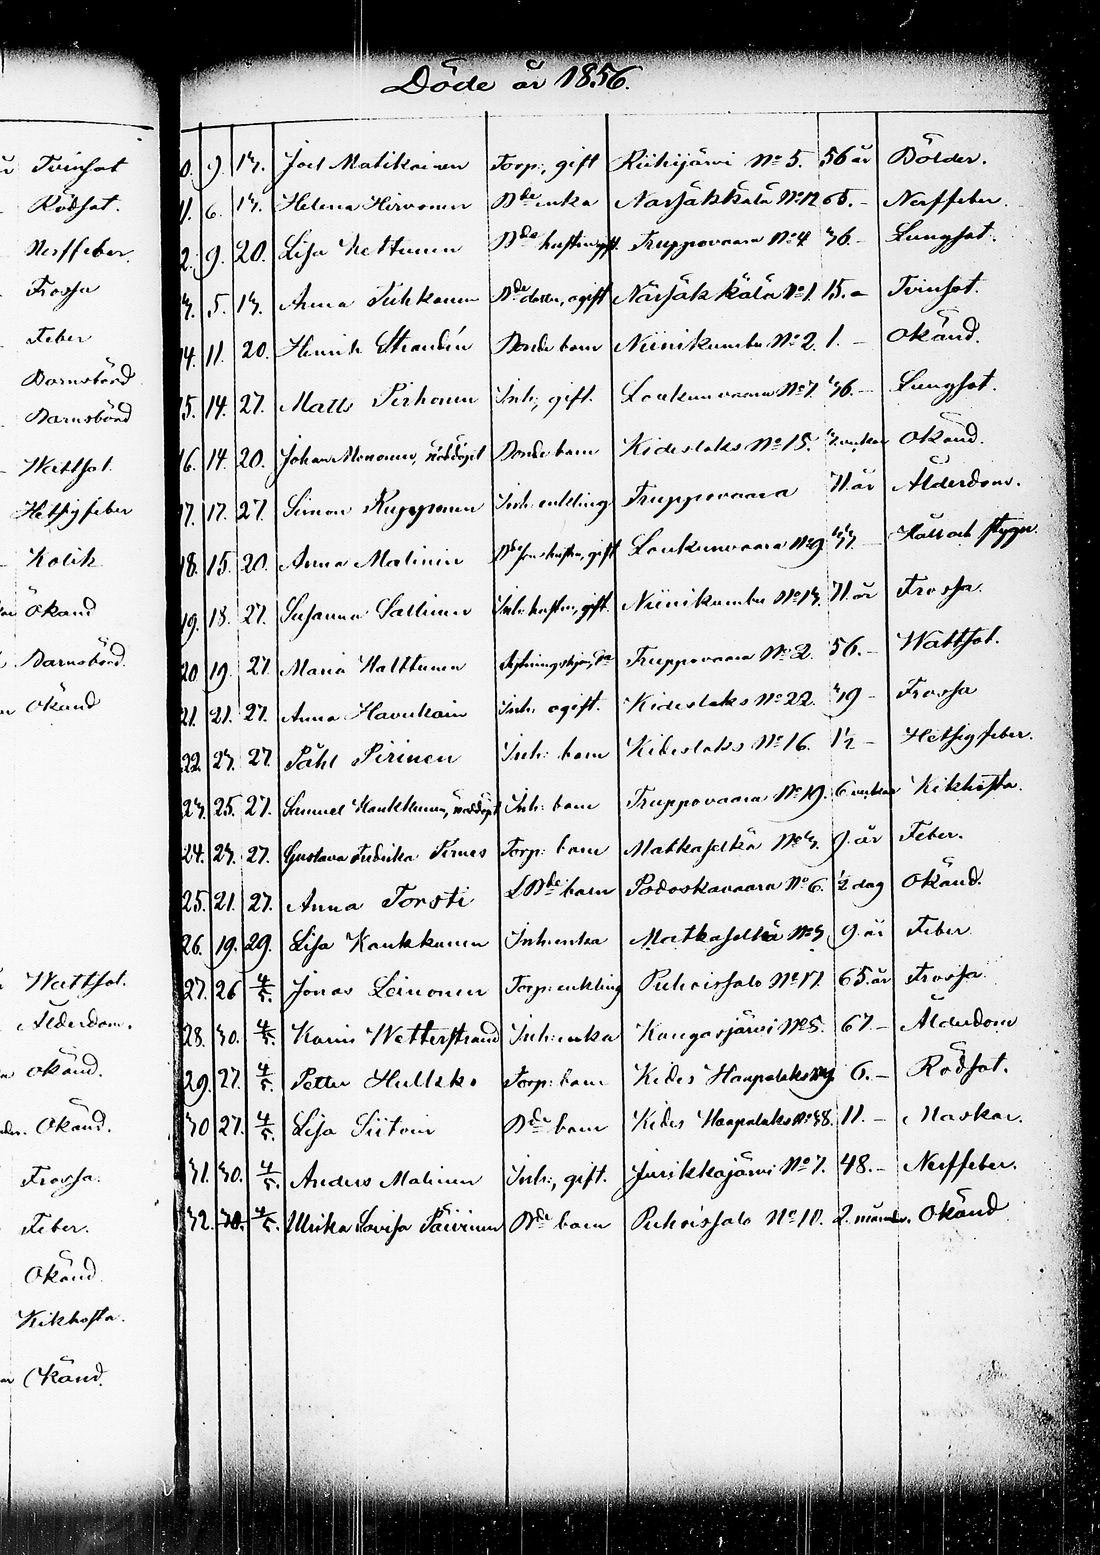 Döde år 1856.
Tvinsot
Rödsot.
Nerffeber.
Frossa
Feber
Barnsbörd
Barnsbörd
Wattsot.
Hetsigfeber
Kolik
Okänd
Barnsbörd.
Okänd
Wattsot.
Ålderdom.
Okänd.
Okänd.
Frossa.
Feber.
Okänd.
Kikhosta.
Okänd.
0. 9. 13. Joel Matikainen Torp: gift Riihijärvi No 5. 56 år Bölder.
11. 6. 13. Helena Hirvonen Bde enka Närsäkkälä No 12 65. – Nerffeber.
2. 9. 20. Lisa Kettunen Bde hustru, gift. Truppovaara No 4 36. – Lungsot.
3. 5. 13. Anna Tuhkanen Bde dotter, ogift Närsäkkälä No 1. 15. – Tvinsot.
14. 11. 20. Henrik Strandén Bonde barn Niinikumbu No 2. 1. – Okänd.
15. 14. 27. Matts Pirhonen Inh:, gift. Loukunvaara No 7. 36. – Lungsot.
16. 14. 20. Johan Mononen, nöddöpt Bonde barn Kideslaks No 15. veckor Okänd.
17. 17. 27. Simon Kupponen Inh: enkling Truppovaara 71 år Ålderdom.
18. 15. 20. Anna Malinin gift Loukunvaara No 9 33 – Håll och stygn.
19. 18. 27. Susanna Sallinen Inh: hustru, gift. Niinikumbu No 13. 71 år Frossa.
20 19. 27. Maria Halttunen Truppovaara No 2. 56. – Wattsot.
21. 21. 27. Anna Havukain Inh: ogift. Kideslaks No 22. 19 – Frossa
22. 23. 27. Påhl Pirinen Inh: barn Kideslaks No 16. 1½ – Hetsigfeber.
23. 25. 27. Samuel Haukkunen, nöddöpt Inh: barn Truppovaara No 19. 6 veckor Kikhosta.
24. 23. 27. Gustava Fredrika Ternes Torp: barn Matkaselkä No 3. 9. år Feber.
25. 21. 27. Anna Torsti L Bde barn Podoskavaara No 6. ½ dag Okänd.
26. 19. 29. Lisa Kaukkunen Inh: enka Matkaselkä No 3 9. år Feber
27. 26 4/5. Jonas Leinonen Torp: enkling Puhoissalo No 17. 65 år Frossa.
28. 30. 4/5. Karin Wetterstrand Inh: enka Kangasjärvi No 5. 67. – Ålderdom
29. 27. 4/5. Petter Hullsko Torp: barn Kides Haapalaks 6. – Rödsot.
30 27. 4/5. Lisa Siitoin Bde barn Kides Haapalaks No 38. 11. – Maskar.
31. 30. 4/5. Anders Malinen Inh:, gift. Juurikkajärvi No 7. 48. – Nerffeber.
32. 30. 4/5. Ulrika Lovisa Päivinen Bde barn Puhoissalo No 10. 2. månader. Okänd